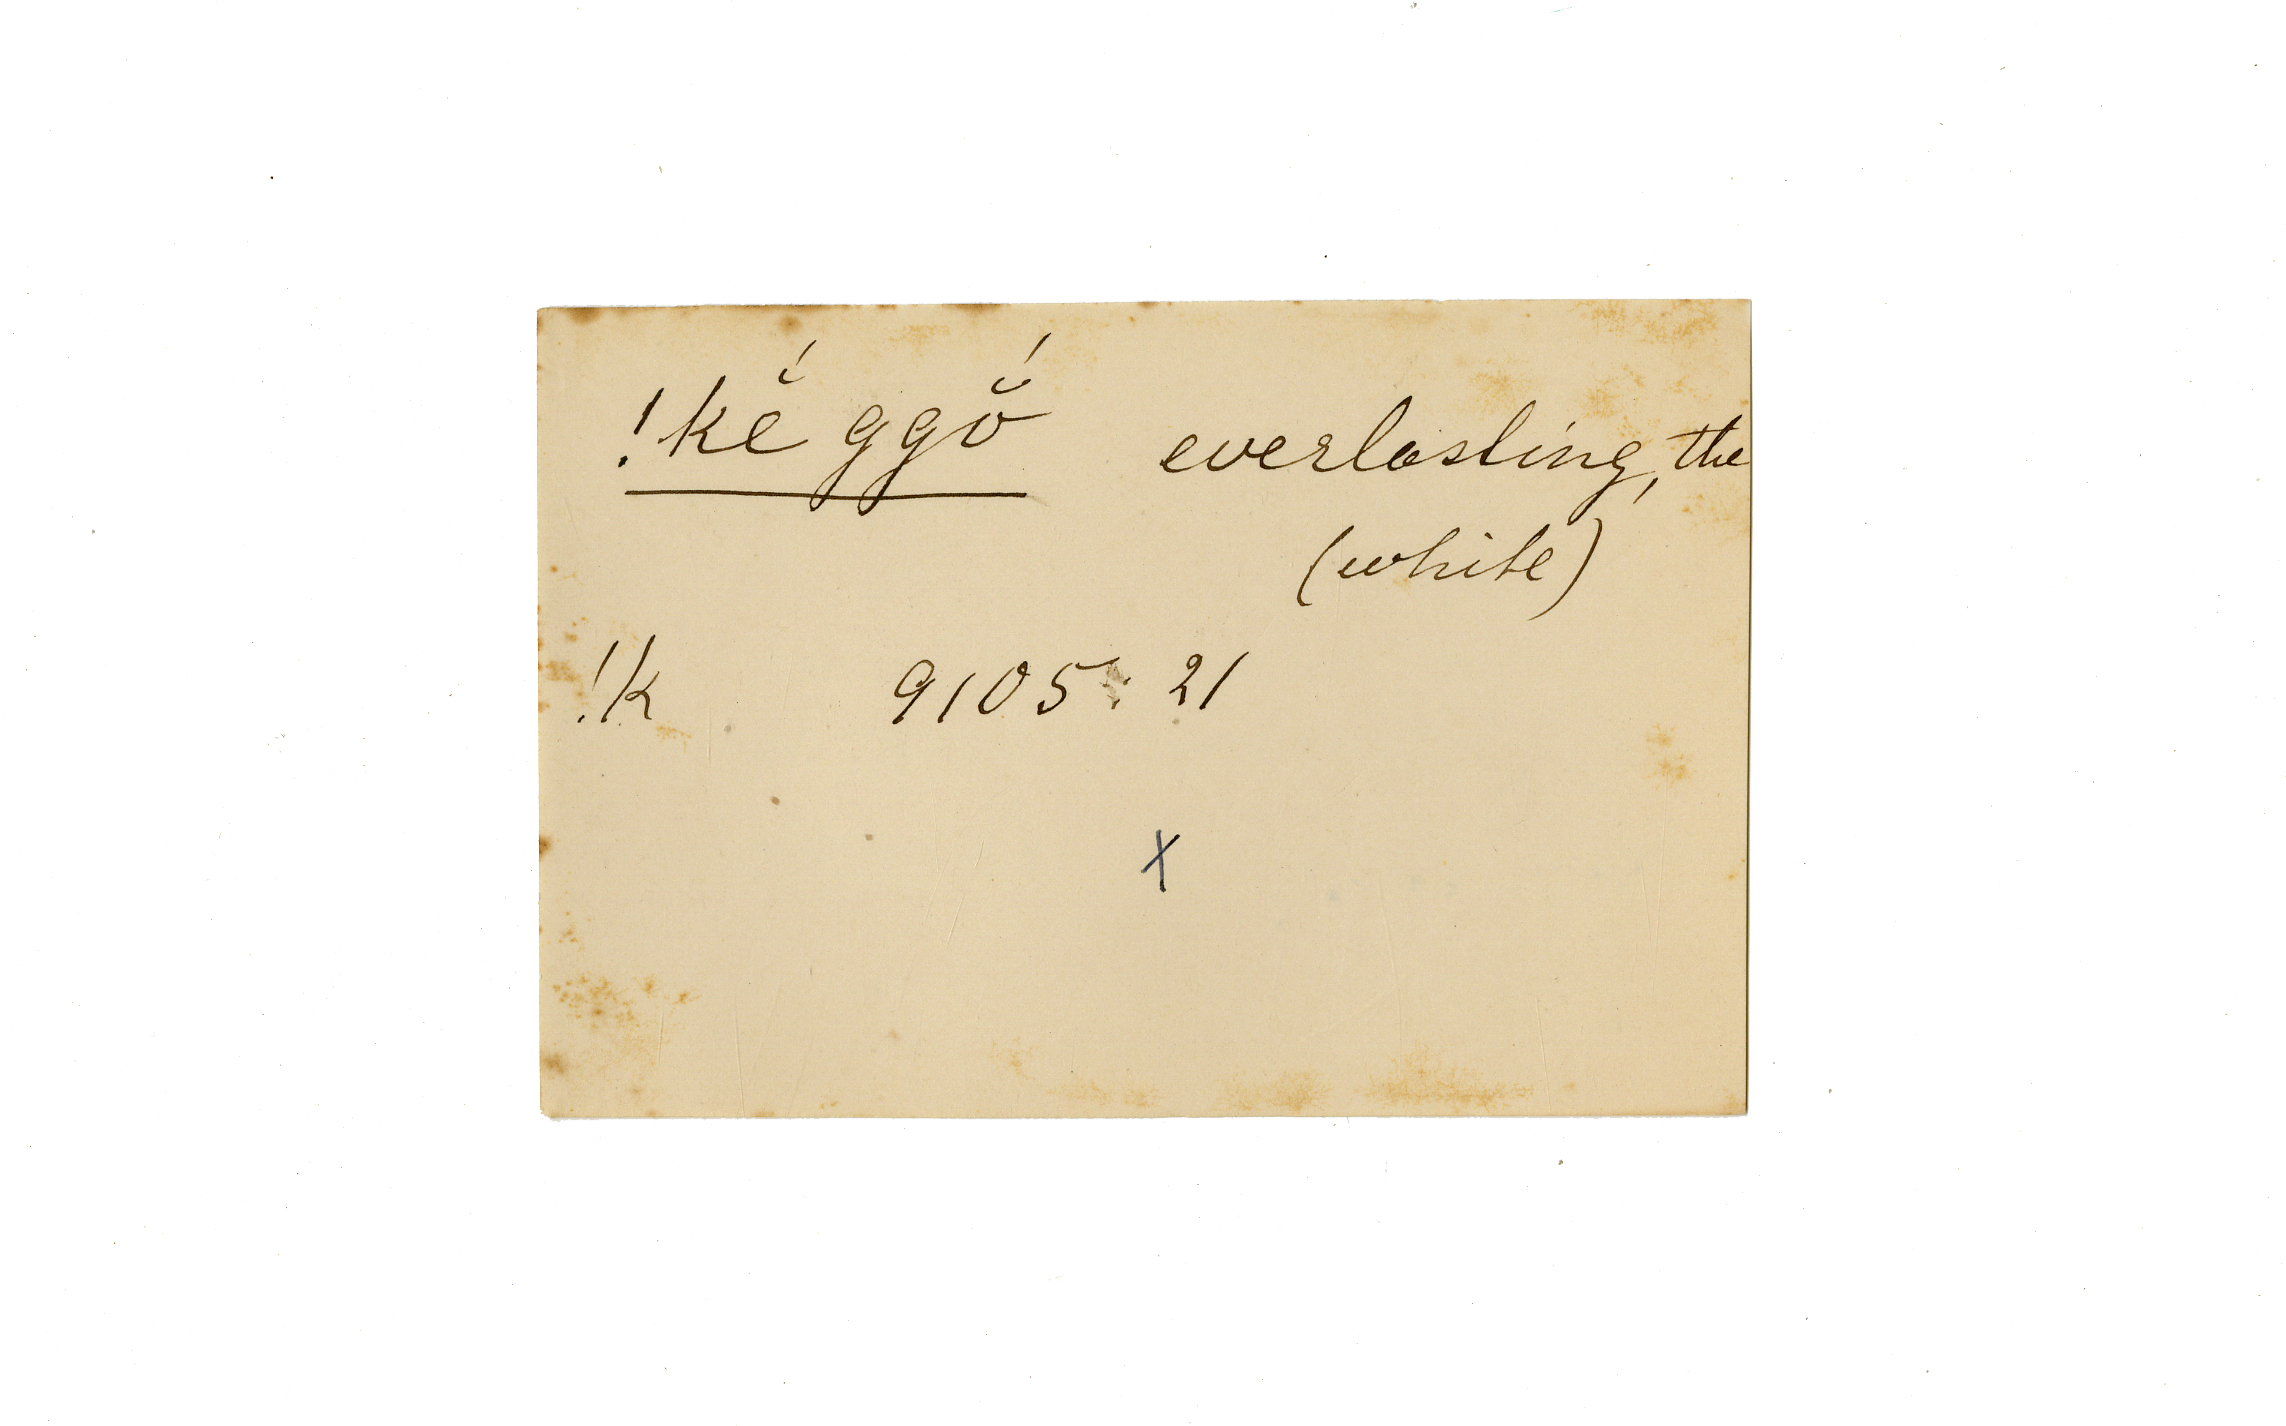 !kĕ́ ggŏ́ everlasting, the
(white)
!k 9105: 21
X